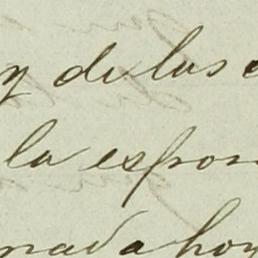 y de las
la espon
nada hoy